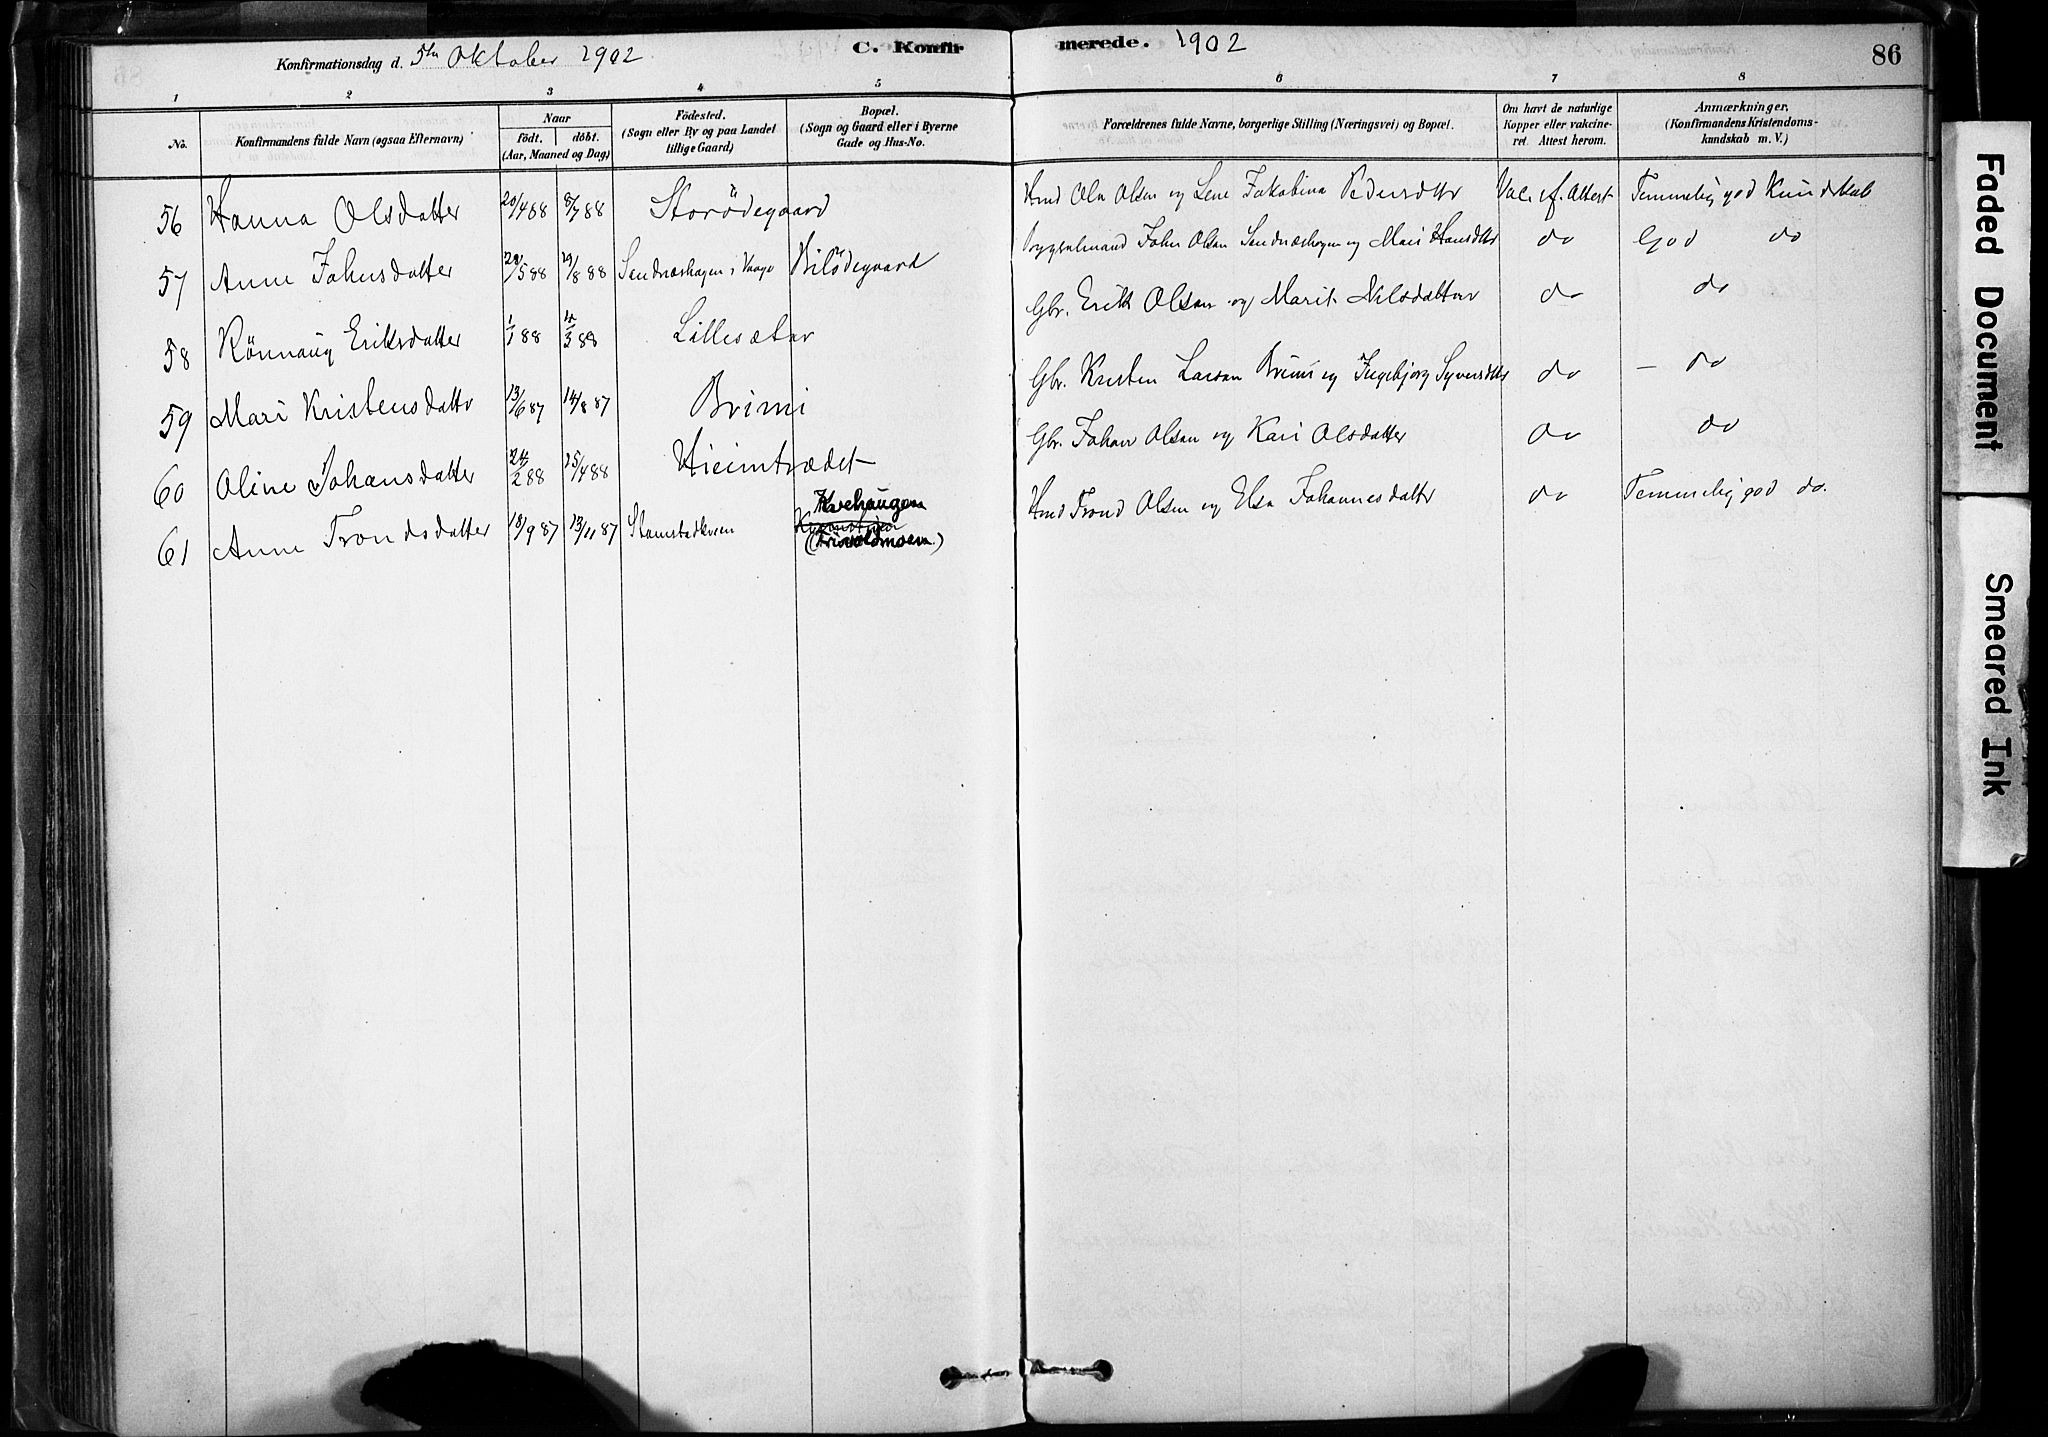 Konfirmationsdag d. 5te Oktober 1902
C. Konfirmerede. 1902
86
1 2 3 4 5 6 7 8
No.
Konfirmandens fulde Navn (ogsaa Efternavn)
Naar
födt. döbt.
(Aar, Maaned og Dag)
Födested.
(Sogn eller By og paa Landet
tillige Gaard)
Bopæl.
(Sogn og Gaard eller i Byerne
Gade og Hus-No.
Forældrenes fulde Navne, borgerlige Stilling (Næringsvei) og Bopæl.
Om havt de naturlige
Kopper eller vakcine-
ret. Attest herom.
Anmærkninger,
(Konfirmandens Kristendoms-
kundskab m. V.)
56 Hanna Olsdatter 20/4 88 8/7 88 Storödegaard Hmd Ola Olsen og Lene Jakobina Pedersdtr Vac. Attest Temmelig god Kundskab
57 Anne Johnsdatter /5 88 19/8 88 i Vaage Bilödegaard John Olsen og Mari Hansdtr do God do
58 Rönnaug Eriksdatter 1/1 88 4/3 88 Lillesæter Gbr. Erik Olsen og Marit Nilsdatter do do
59 Mari Kristensdattr 13/6 87 14/8 87 Brimi Gbr. Kristen Larsen Brimi og Ingebjörg Syversdtr do — do
60 Oline Johansdatter 24/2 88 15/4 88 Gbr. Johan Olsen og Kari Olsdatter do do
61 Anne Trondsdatter 18/9 87 13/11 87 Stamstadkvern Kvehaugen Hmd Trond Olsen og Elsa Johannesdattr do Temmelig god do.
Faded Document
Smeared Ink